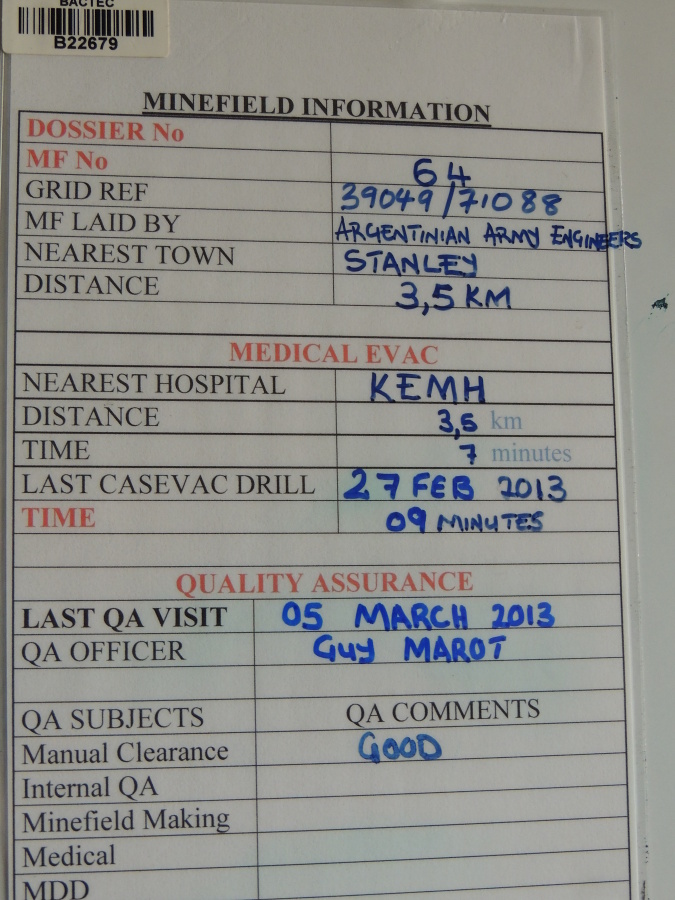 BACTEC
B22679
MINEFIELD INFORMATION
DOSSIER No
MF No 64
GRID REF 39049/71088
MF LAID BY ARGENTINIAN ARMY ENGINEERS
NEAREST TOWN STANLEY
DISTANCE 3,5 KM
MEDICAL EVAC
NEAREST HOSPITAL KEMH
DISTANCE 3,5 km
TIME 7 minutes
LAST CASEVAC DRILL 27 FEB 2013
TIME 09 MINUTES
QUALITY ASSURANCE
LAST QA VISIT 05 MARCH 2013
QA OFFICER Guy MAROT
QA SUBJECTS QA COMMENTS
Manual Clearance GOOD
Internal QA
Minefield Making
Medical
MDD